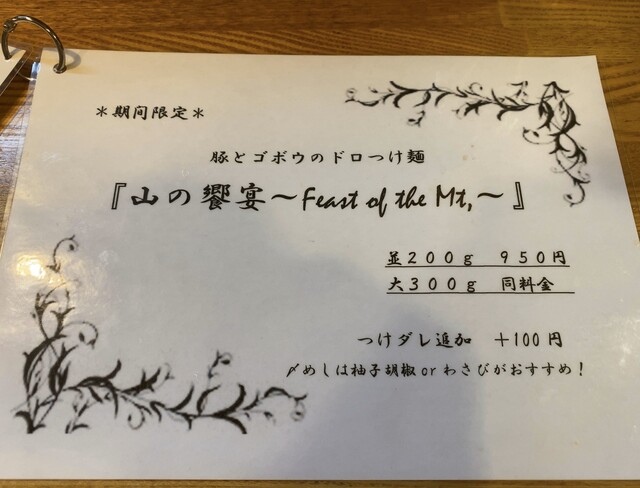 ＊期間限定＊
豚とゴボウのドロつけ麺
『山の饗宴～Feast of the Mt,～』
並２００ｇ　９５０円
大３００ｇ　同料金
つけダレ追加　＋100円
〆めしは柚子胡椒orわさびがおすすめ！